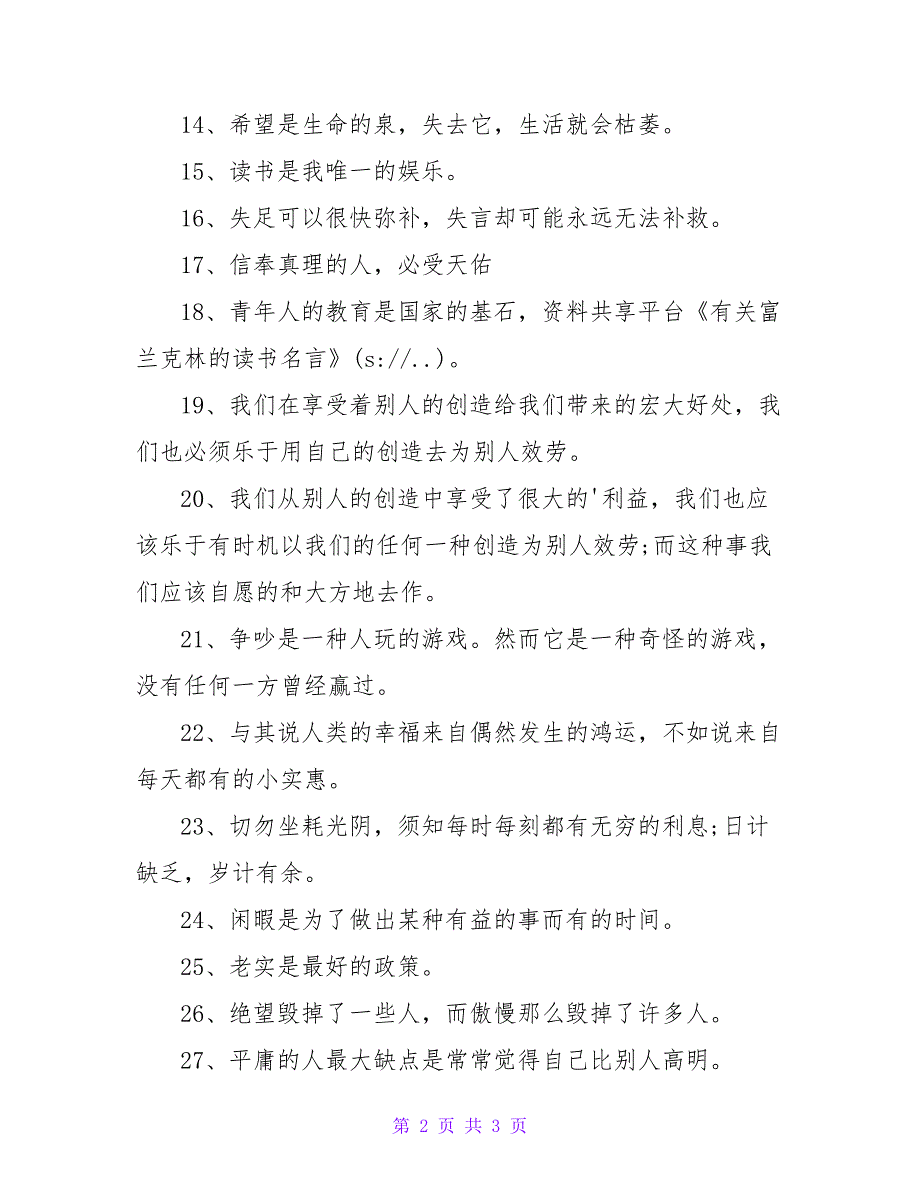 14、希望是生命的泉，失去它，生活就会枯萎。
15、读书是我唯一的娱乐。
16、失足可以很快弥补，失言却可能永远无法补救。
17、信奉真理的人，必受天佑
18、青年人的教育是国家的基石，资料共享平台《有关富
兰克林的读书名言》(s://..)。
19、我们在享受着别人的创造给我们带来的宏大好处，我
们也必须乐于用自己的创造去为别人效劳。
20、我们从别人的创造中享受了很大的'利益，我们也应
该乐于有时机以我们的任何一种创造为别人效劳;而这种事我
们应该自愿的和大方地去作。
21、争吵是一种人玩的游戏。然而它是一种奇怪的游戏，
没有任何一方曾经赢过。
22、与其说人类的幸福来自偶然发生的鸿运，不如说来自
每天都有的小实惠。
23、切勿坐耗光阴，须知每时每刻都有无穷的利息;日计
缺乏，岁计有余。
24、闲暇是为了做出某种有益的事而有的时间。
25、老实是最好的政策。
26、绝望毁掉了一些人，而傲慢那么毁掉了许多人。
27、平庸的人最大缺点是常常觉得自己比别人高明。
第 2 页 共 3 页